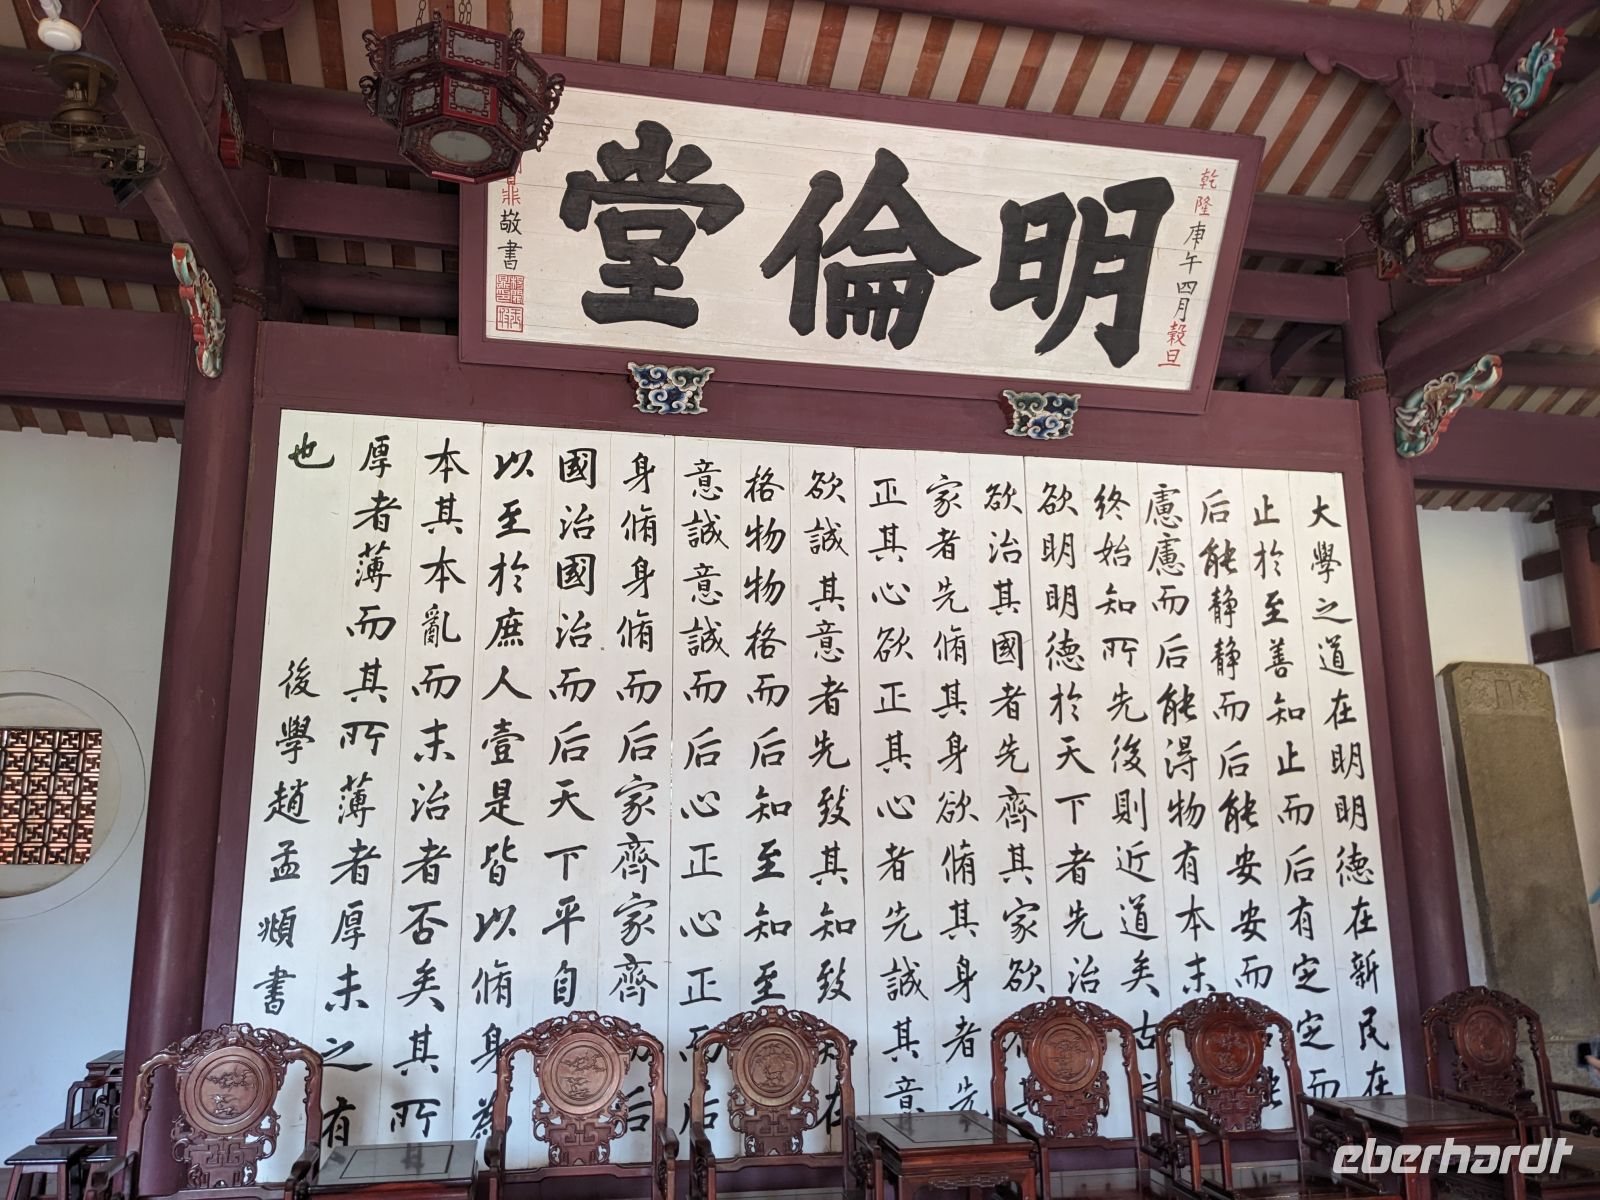 明倫堂
乾隆庚午四月穀旦
鼎敬書
大學之道在明明德在新民在
止於至善知止而后有定定而
后能静静而后能安安而后能
慮慮而后能得物有本末
終始知所先後則近道矣古之
欲明明德於天下者先治
欲治其國者先齊其家欲
家者先脩其身欲脩其身者先
正其心欲正其心者先誠其意
欲誠其意者先致其知致知在
格物物格而后知至知至
意誠意誠而后心正心正而后
身脩身脩而后家齊家齊而后
國治國治而后天下平自
以至於庶人壹是皆以脩身為
本其本亂而末治者否矣其所
厚者薄而其所薄者厚未之有
也 後學趙孟頫書
eberhardt